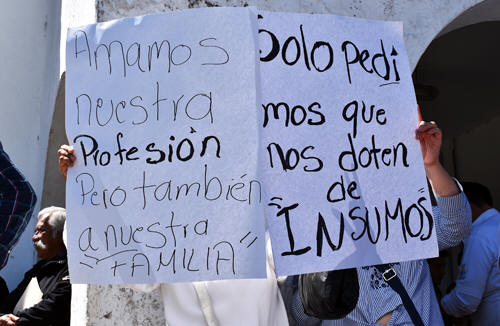 Amamos
nuestra
Profesión
Pero también
a nuestra
"FAMILIA"
Solo pedi
mos que
nos doten
de
"INSUMOS"